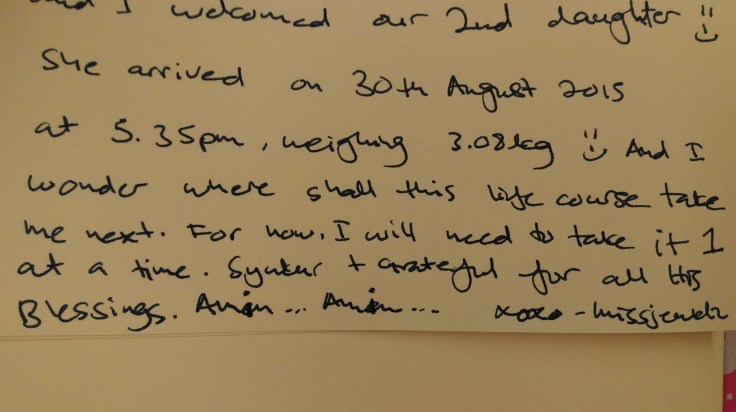 and I welcomed our 2nd daughter :)
She arrived on 30th August 2015
at 5.35pm, weighing 3.08kg :) And I
wonder where shall this life course take
me next. For now, I will need to take it 1
at a time. Syukur + Grateful for all His
Blessings. Amin... Amin... xoxo -